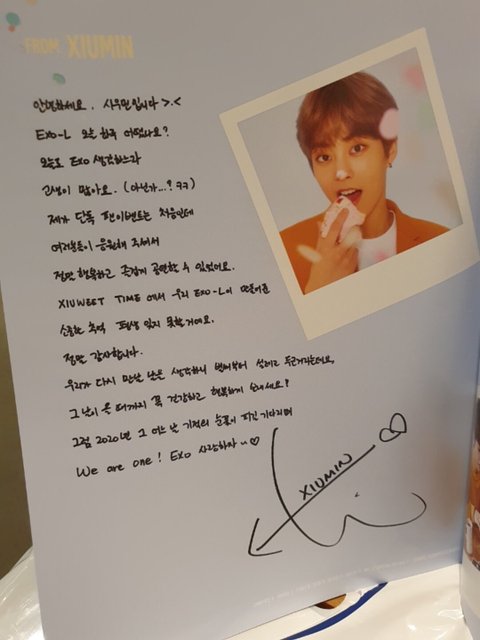 FROM. XIUMIN
안녕하세요. 시우민입니다 >.<
EXO-L 오늘 하루 어땠나요?
오늘도 EXO 생각하느라
고생이 많아요. (아닌가...? ㅋㅋ)
제가 단독 팬이벤트는 처음인데
여러분들이 응원해 주셔서
정말 행복하고 즐겁게 공연할 수 있었어요.
XIUWEET TIME 에서 우리 EXO-L이 만들어준
소중한 추억 평생 잊지 못할거에요.
정말 감사합니다.
우리가 다시 만날 날은 생각하니 벌써부터 설레고 두근거리는데요,
그 날이 올 때까지 꼭 건강하고 행복하게 보내세요?
그럼 2020년 그 어느 날 기적의 눈꽃이 피길 기다리며
We are one! EXO 사랑하자 ~ ♡
XIUMIN ♡